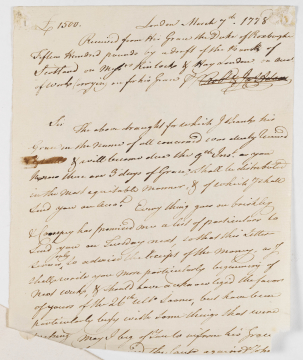 £ 1500. London March 7th. 1778
Received from His Grace the Duke of Roxburgh
Fifteen Hundred pounds by a draft of the Bank of
Scotland on Messrs Kinlocks & Hog London on acct
of Works carrying on for his Grace
Sir The above draught for which I thank his
Grace in the name of all concerned
& will become due the 9th Inst. as you
know there are 3 days of Grace, I shall be distributed
in the most equitable manner, & of which I shall
Send you an acct. Every thing goes on briskly
& has promised me a list of particulars to
Send you on Tuesday next, so that this Letter
Serves only to advise the receipt of the money, as I
shall write you more particularly beginning of
next week, & should have acknowledged the favor
of yours of the 26th last Sooner, but have been
particularly busy with some things that were
May I beg of you to inform his Grace